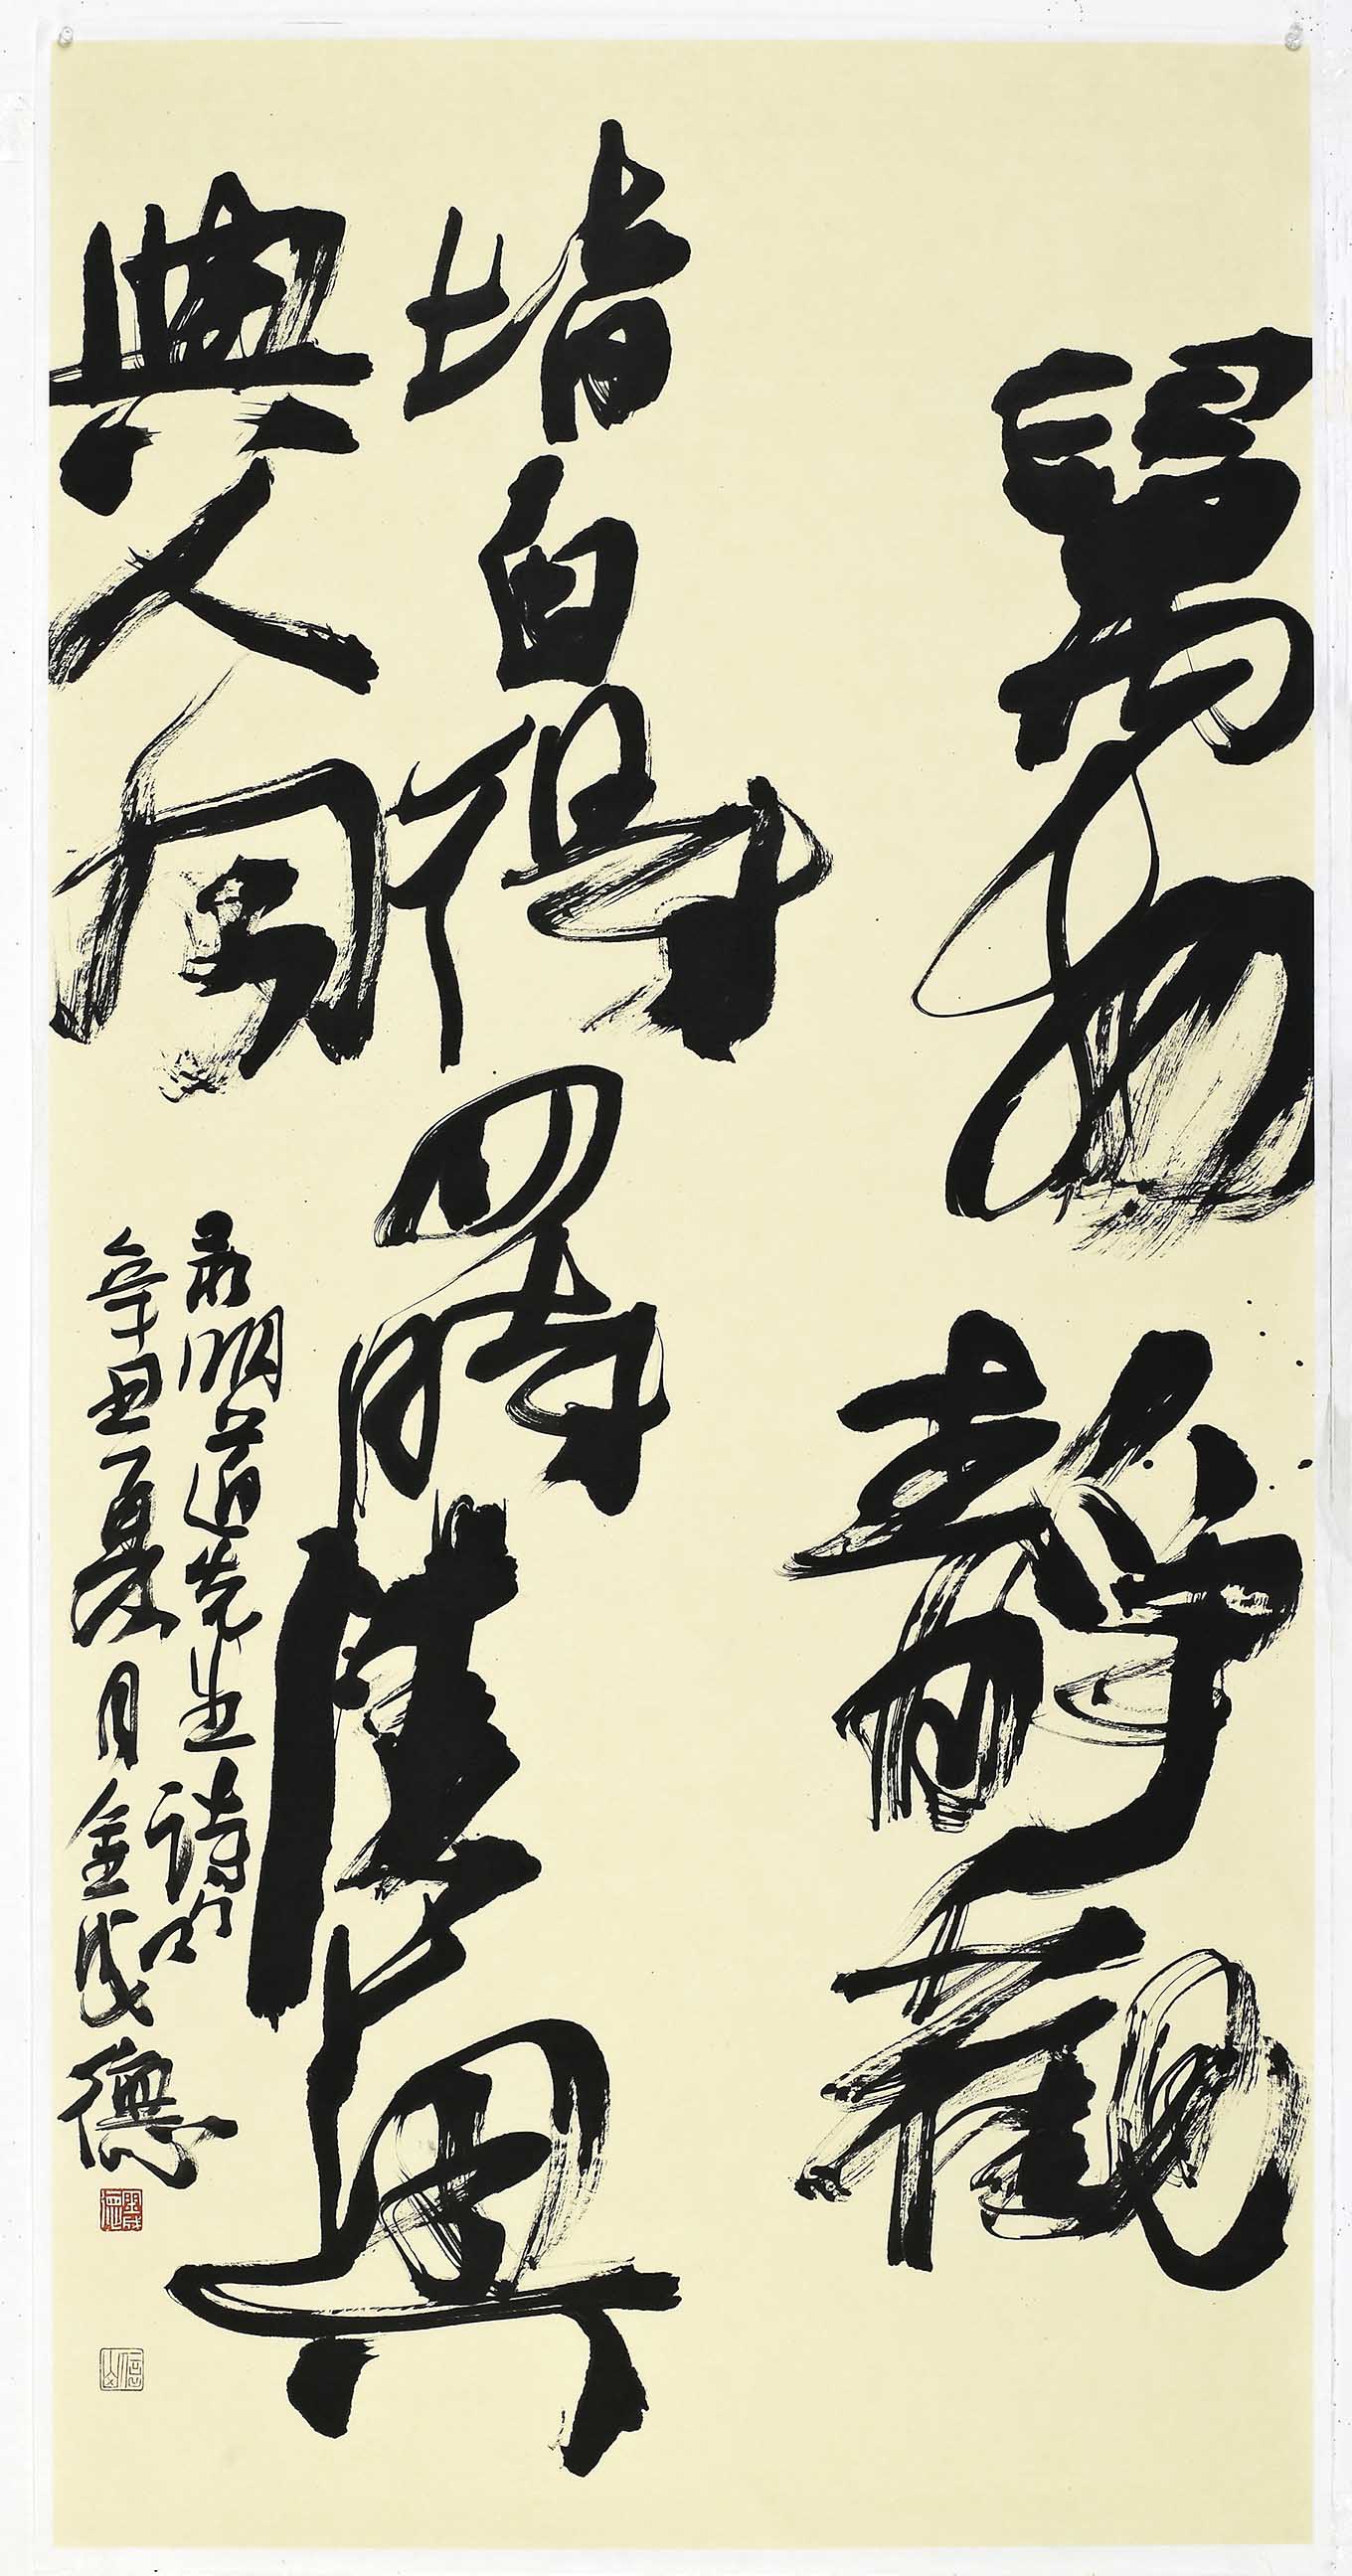 萬物靜觀
皆自得四時佳興
與人同
录明道先生詩句
辛丑夏月金成德